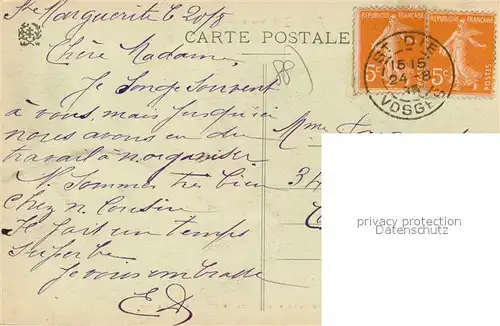 Ste Marguerite le 20/8
CARTE POSTALE
RÉPUBLIQUE FRANÇAISE RÉPUBLIQUE FRANÇAISE
5c 5c
POSTES
ST-DIÉ
15 15
24-8
VOSGES
(88)
Chère Madame,
Je Songe Souvent
à vous, mais jusqu'ici
nous avons eu du
travail à n. organiser
N. Sommes très bien
chez n. Cousin
Il fait un temps
superbe
Je vous embrasse
E.D
Mme
34
privacy protection
Datenschutz